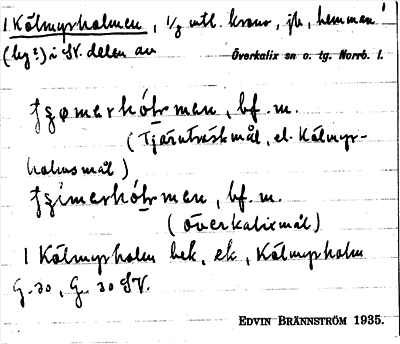 1 Kälmyrholmen, 1/3 mtl. krono, jb., hemman
(by?) i SV. delen av Överkalix sn o. tg. Norrb. l.
bf. m.
(Tjärnträskmål, el. Kälmyr-
holmsmål)
bf. m.
(överkalixmål)
1 Kälmyrholm bek, ek, Kälmyrholm
G. 30, G. 30 SV.
EDVIN BRÄNNSTRÖM 1935.